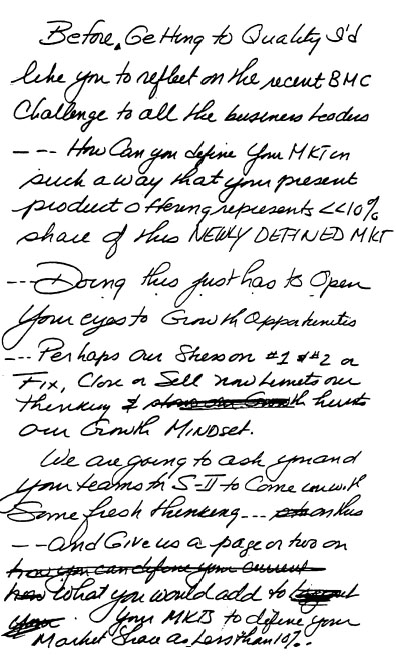 Before Getting to Quality I'd
like you to reflect on the recent BMC
Challenge to all the business leaders
--- How Can you define Your MKT in
such a way that your present
product offering represents <<10%
share of this NEWLY DEFINED MKT
--- Doing this just has to Open
Your eyes to Growth Opportunities
--- Perhaps our Stress on #1 & #2 or
Fix, Close or Sell now limits our
thinking & hurts
our Growth MINDSET.
We are going to ask you and
your teams in S-II to Come in with
Some fresh thinking --- on this
-- and Give us a page or two on
how you can define your current
how What you would add to
Your MKTS to define your
Market Share as Less than 10%.